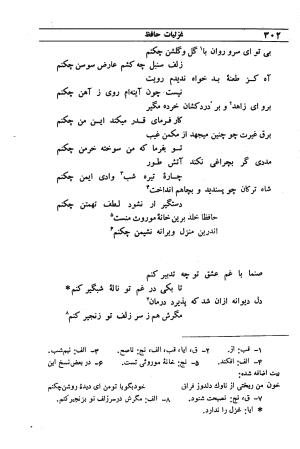 ۳۰۲
غزلیات حافظ
بی تو ای سرو روان با۱ گل وگلشن چکنم
زلف سنبل چه کشم عارض سوسن چکنم
آه کـز طعنهٔ بـد خواه ندیدم رویت
نیست چون آینه‌ام روی ز آهن چکنم
برو ای زاهد۲ و بر دردکشان خرده مگیر
کارفرمای قدر میکند این من چکنم
برق غیرت چو چنین میجهد از مکمن غیب
تـو بفرما که من سوخته خرمن چکنم
مددی گر بچراغی نکند آتش طـور
چـارهٔ تیره شب۳ وادی ایمن چکنم
شاه ترکان چو پسندید و بچاهم انداخت۴
دستگیر ار نشود لطف تهمتن چکنم
حافظا خلد برین خانهٔ موروث منست۵
اندرین منزل ویرانه نشیمن چکنم۶
صنما با غم عشق تو چه تدبیر کنم
تا بکی در غم تو نالهٔ شبگیر کنم*
دل دیوانه ازان شد که پذیرد درمان۷
مگرش هم ز سر زلف تو زنجیر کنم۸
۱- قب: از. ۲- ق، ایا، قب، الف، نج: ناصح. ۳- الف: نیم‌شب.
۴- الف: افکند. ۵- نج: خانهٔ موروثی تست. ۶- در بعض نسخ این
بیت اضافه شده:
خون من ریختی از ناوک دلدوز فراق خودبگویا تو من ای دیدهٔ روشن‌چکنم
۷- ق، نج: نصیحت شنود. ۸- الف: مگرش درسرزلف تو بزنجیرکنم.
* ایا: غزل را ندارد.